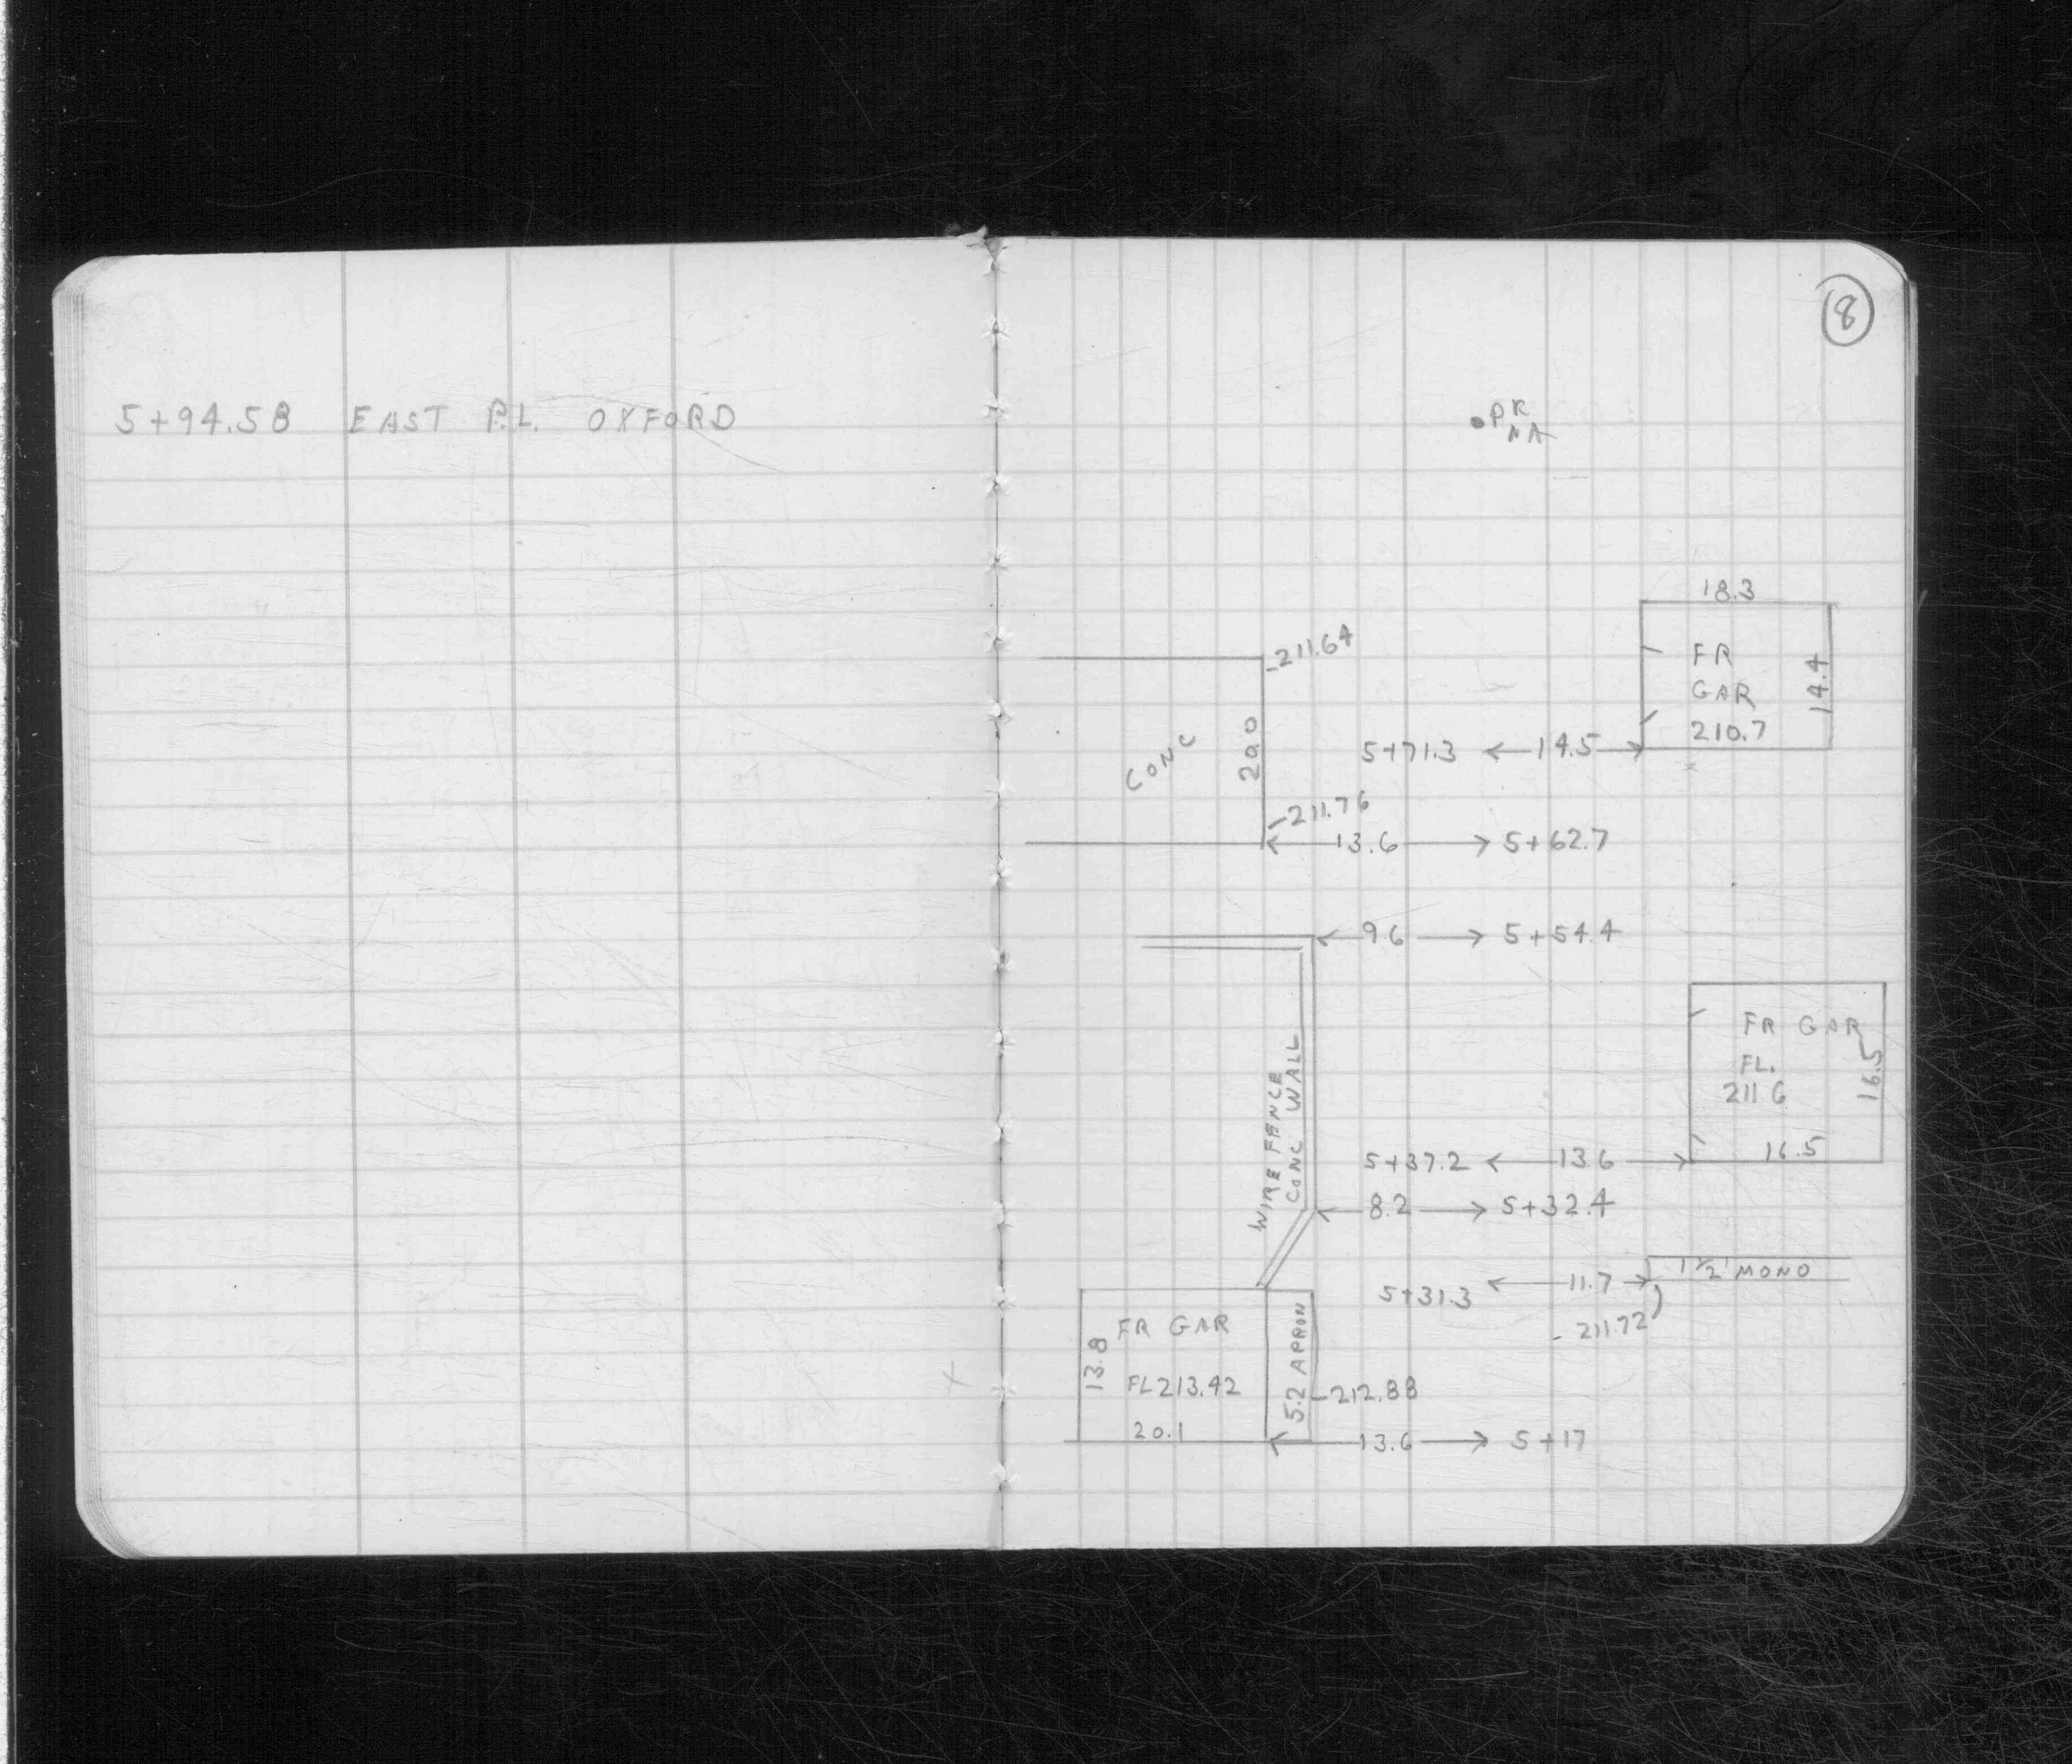 5+94.58 EAST P.L. OXFORD
8
PK
NA
18.3
-211.64
FR
GAR
210.7
14.4
CONC
20.0
5+71.3 ← 14.5 →
-211.76
← 13.6 → 5+62.7
← 9.6 → 5+54.4
FR GAR
FL.
211 6
16.5
16.5
WIRE FENCE
CONC WALL
5+37.2 ← 13.6 →
← 8.2 → 5+32.4
1 1/2' MONO
5+31.3 ← 11.7 →
- 211.72
FR GAR
13.8
FL 213.42
20.1
5.2 APRON
-212.88
← 13.6 → 5+17